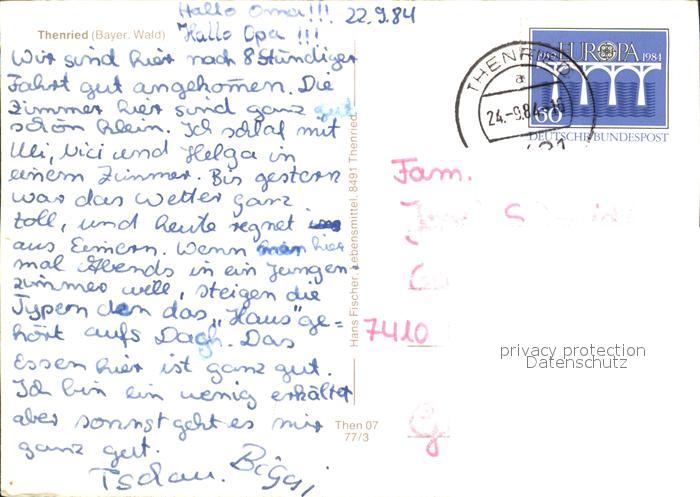 Hallo Oma!!! 22.9.84
Thenried (Bayer. Wald) Hallo Opa !!!
Wir sind hier nach 8 Stündiger
Fahrt gut angekommen. Die
Zimmer hier sind ganz
schön klein. Ich schlaf mit
Uli, Vici und Helga in
einem Zimmer. Bis gestern
war das Wetter ganz
toll, und heute regnet
aus Eimern. Wenn hier
mal Abends in ein Jungen-
zimmer will, steigen die
Typen den das "Haus" ge=
hört aufs Dach. Das
Essen hier ist ganz gut.
Ich bin ein wenig erkältet
aber sonnst geht es mir
ganz gut.
Tschau. Biggi
Hans Fischer, Lebensmittel, 8491 Thenried
Then 07
77/3
THENRIED
a
24.-9.84-16
EUROPA 1984
60
DEUTSCHE BUNDESPOST
Fam.
7410
privacy protection
Datenschutz